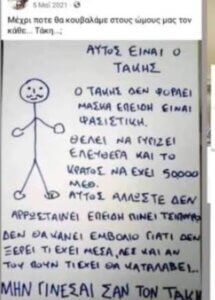 5 Μαΐ 2021
Μέχρι ποτε θα κουβαλάμε στους ώμους μας τον
κάθε... Τάκη...;
ΑΥΤΟΣ ΕΙΝΑΙ Ο
ΤΑΚΗΣ
Ο ΤΑΚΗΣ ΔΕΝ ΦΟΡΑΕΙ
ΜΑΣΚΑ ΕΠΕΙΔΗ ΕΙΝΑΙ
ΦΑΣΙΣΤΙΚΗ.
ΘΕΛΕΙ ΝΑ ΓΥΡΙΖΕΙ
ΕΛΕΥΘΕΡΑ ΚΑΙ ΤΟ
ΚΡΑΤΟΣ ΝΑ ΕΧΕΙ 50000
ΜΕΘ.
ΑΥΤΟΣ ΑΛΛΩΣΤΕ ΔΕΝ
ΑΡΡΩΣΤΑΙΝΕΙ ΕΠΕΙΔΗ ΠΙΝΕΙ
ΔΕΝ ΘΑ ΚΑΝΕΙ ΕΜΒΟΛΙΟ ΓΙΑΤΙ ΔΕΝ
ΞΕΡΕΙ ΤΙ ΕΧΕΙ ΜΕΣΑ, ΛΕΣ ΚΑΙ ΑΝ
ΤΟΥ ΠΟΥΝ ΤΙ ΕΧΕΙ ΘΑ ΚΑΤΑΛΑΒΕΙ...
ΜΗΝ ΓΙΝΕΣΑΙ ΣΑΝ ΤΟΝ ΤΑΚΗ